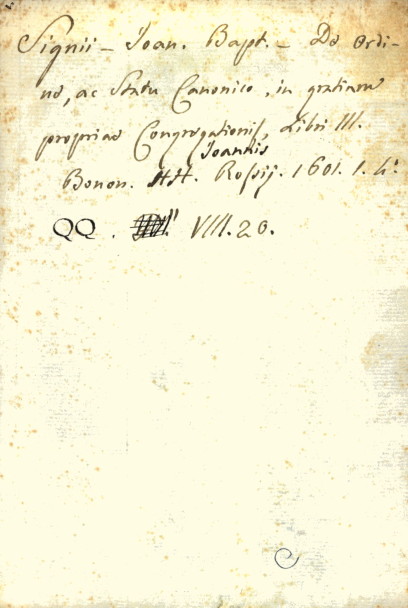 Signii - Joan. Bapt. - De Ordi-
ne, ac Statu Canonico, in gratiam
propriae Congregationis, Libri III.
Joannis
Bonon. HH. Rossij. 1601. 1. 4.º
QQ. VIII. 20.